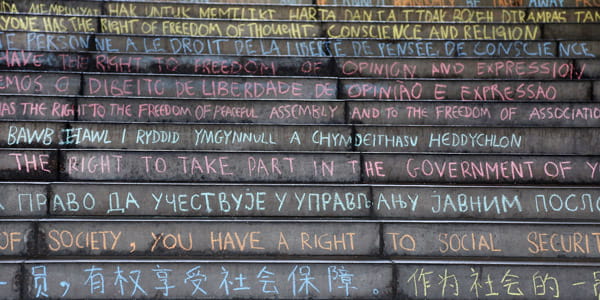 MEMPUNYAI HAK UNTUK MEMILIKI HARTA DAN IA TIDAK BOLEH DIRAMPAS
YONE HAS THE RIGHT OF FREEDOM OF THOUGHT, CONSCIENCE AND RELIGION
PERSONNE A LE DROIT DE LA LIBERTÉ DE PENSÉE, DE CONSCIENCE,
HAVE THE RIGHT TO FREEDOM OF OPINION AND EXPRESSION
EMOS O DIREITO DE LIBERDADE DE OPINIÃO E EXPRESSÃO
HAS THE RIGHT TO THE FREEDOM OF PEACEFUL ASSEMBLY AND TO THE FREEDOM OF ASSOCIATIO
BAWB HAWL I RYDDID YMGYNNULL A CHYMDEITHASU HEDDYCHLON
THE RIGHT TO TAKE PART IN HE GOVERNMENT OF Y
ПРАВО ДА УЧЕСТВУЈЕ У УПРАВЉАЊУ ЈАВНИМ ПОСЛО
OF SOCIETY, YOU HAVE A RIGHT TO SOCIAL SECURIT
一员，有权享受社会保障。 作为社会的一员